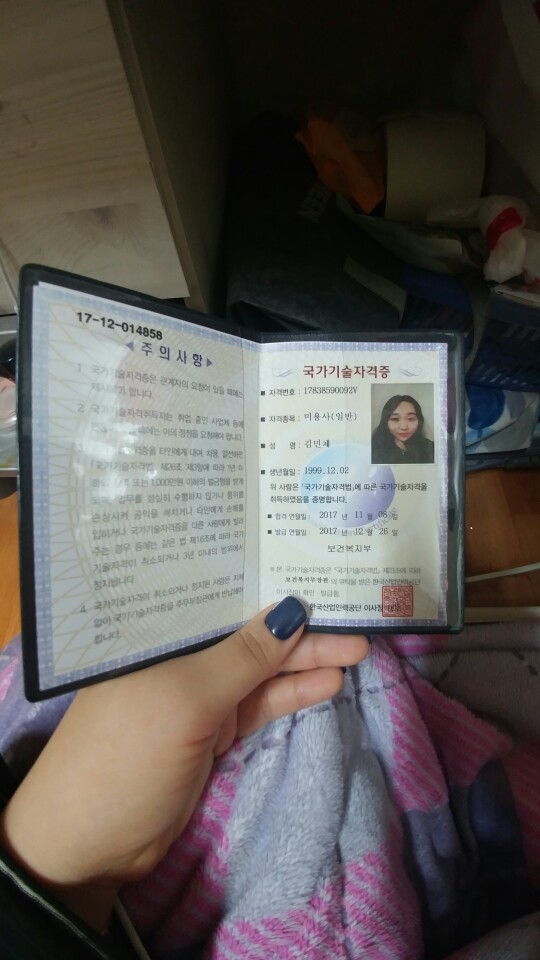 17-12-014858
주의사항
1. 국가기술자격증은 관계자의 요청이 있을 때에는
제시해야 합니다.
2. 국가기술자격취득자는 취업 중인 사업체 등에
변경이 있을 때에는 이의 정정을 요청해야 합니다.
대여
1,000만원
업무를 성실히 수행하지 않거나 품위를
손상시켜 공익을 해치거나 타인에게 손해를
입히거나 국가기술자격증을 다른 사람에게 빌려
주는 경우 등에는 같은 법 제16조에 따라 국가
기술자격이 취소되거나 3년 이내의 범위에서
정지됩니다.
4. 국가기술자격이 취소되거나 정지된 사람은 지체
없이 국가기술자격증을 주무부장관에게 반납해야
합니다.
국가기술자격증
자격번호 : 17838590092V
자격종목 : 미용사(일반)
성 명 : 김민채
생년월일 : 1999.12.02
위 사람은 「국가기술자격법」에 따른 국가기술자격을
취득하였음을 증명합니다.
합격 연월일 : 2017 년 11 월 08 일
발급 연월일 : 2017 년 12 월 26 일
보건복지부
※ 본 국가기술자격증은 「국가기술자격법」 제23조에 따라
보건복지부장관의 위탁을 받은 한국산업인력공단
이사장이 확인 발급함.
한국산업인력공단 이사장